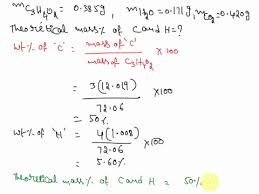 mC3H4O2 = 0.385g, mH2O = 0.171g, mCO2 = 0.420g
Theoretical mass% of C and H = ?
Wt % of 'C' = mass of 'C' / mass of C3H4O2 × 100
= 3(12.019) / 72.06 × 100
= 50%
Wt % of 'H' = 4(1.008) / 72.06 × 100
= 5.60%
Theoretical mass% of C and H = 50%